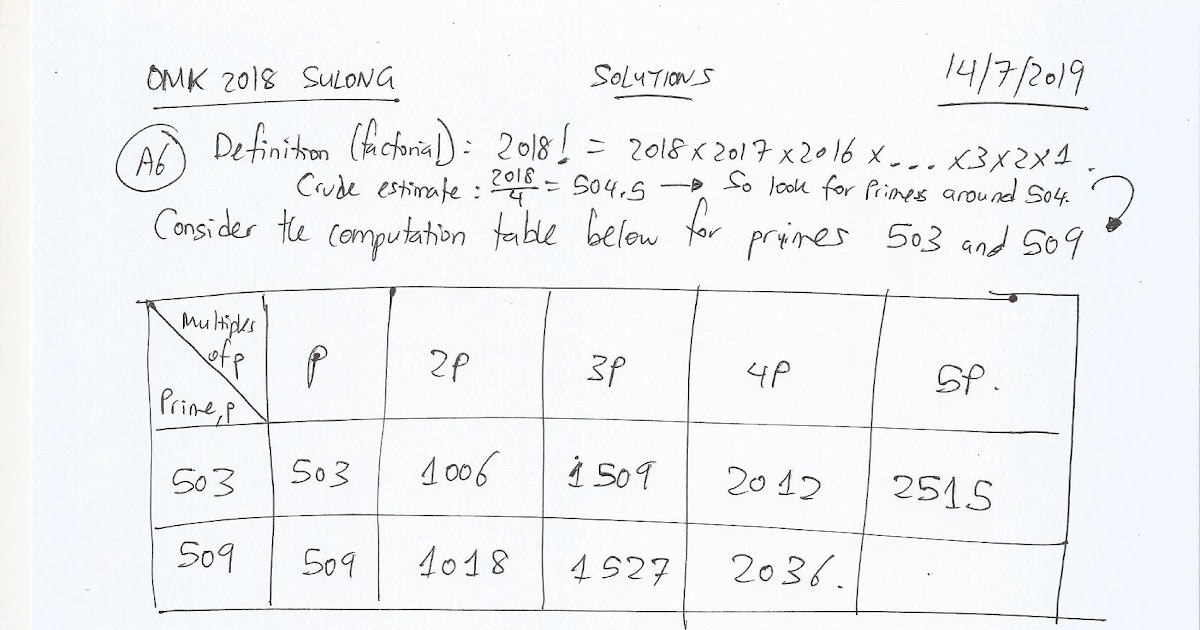 OMK 2018 SULONG SOLUTIONS 14/7/2019
A6 Definition (factorial): 2018! = 2018 x 2017 x 2016 x ... x3x2x1.
Crude estimate: 2018/4 = 504.5 → So look for Primes around 504.
Consider the computation table below for primes 503 and 509
Multiples of p
Prime, p
P 2P 3P 4P 5P.
503 503 1006 1509 2012 2515
509 509 1018 1527 2036.